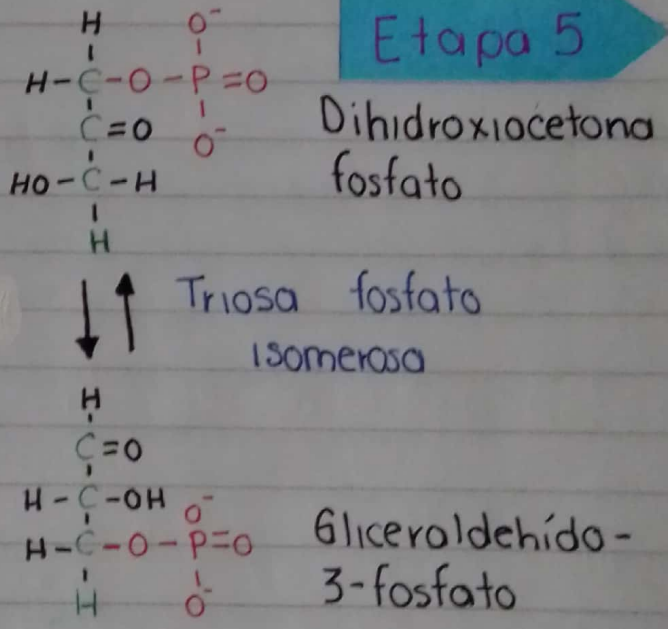 Etapa 5
H O⁻
H-C-O-P=O
C=O O⁻
HO-C-H
H
Dihidroxiacetona
fosfato
Triosa fosfato
isomerasa
H
C=O
H-C-OH O⁻
H-C-O-P=O
H O⁻
Gliceraldehído-
3-fosfato